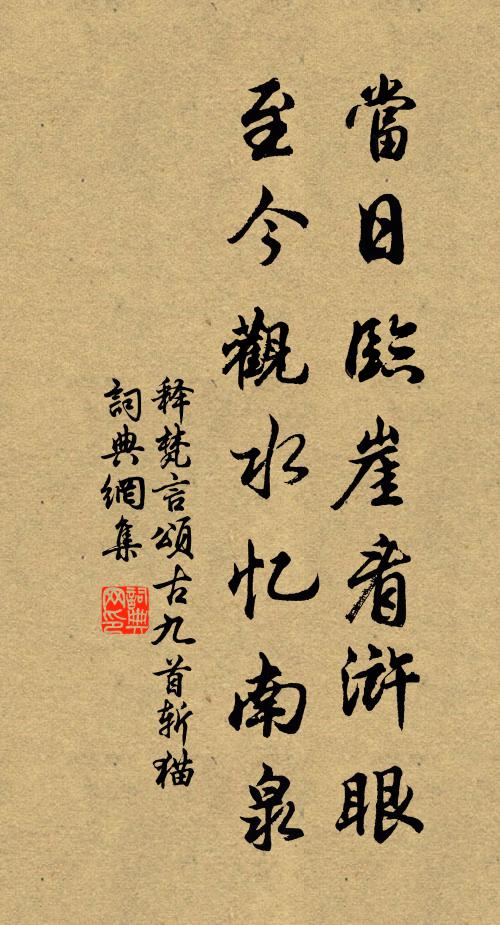 當日臨崖看滸眼
至今觀水忆南泉
释梵言頌古九首斩猫
詞典網集
詞典网印